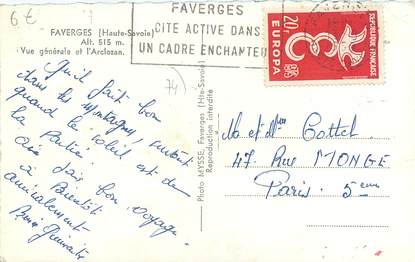 6 €
FAVERGES (Haute-Savoie)
Alt. 515 m.
Vue générale et l'Arclozan.
FAVERGES
CITE ACTIVE DANS
UN CADRE ENCHANTEUR
20F
EUROPA
RÉPUBLIQUE FRANÇAISE
74
Photo MYSSE, Faverges (Hte-Savoie)
Reproduction interdite
Qu'il fait bon
dans les montagnes, surtout
quand le soleil est de
la Partie.
bon voyage
à Bientôt
amicalement
M et Mme Cottet
47 Rue MONGE
Paris. 5eme